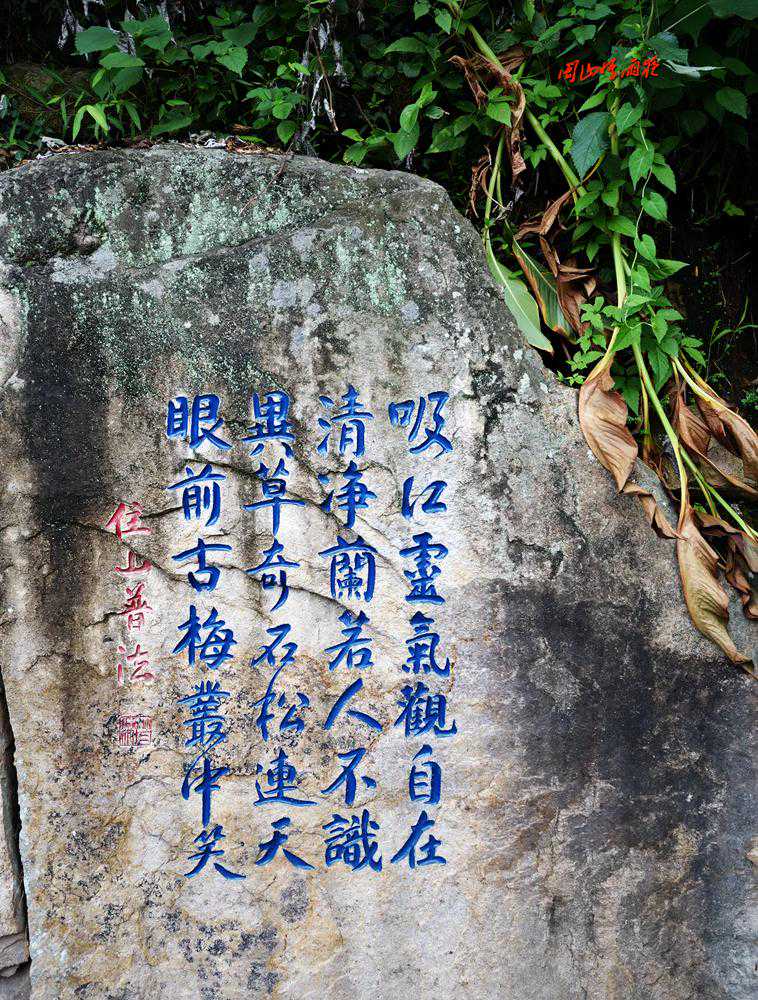 吸江靈氣觀自在
清净蘭若人不識
異草奇石松連天
眼前古梅叢中笑
住山普法